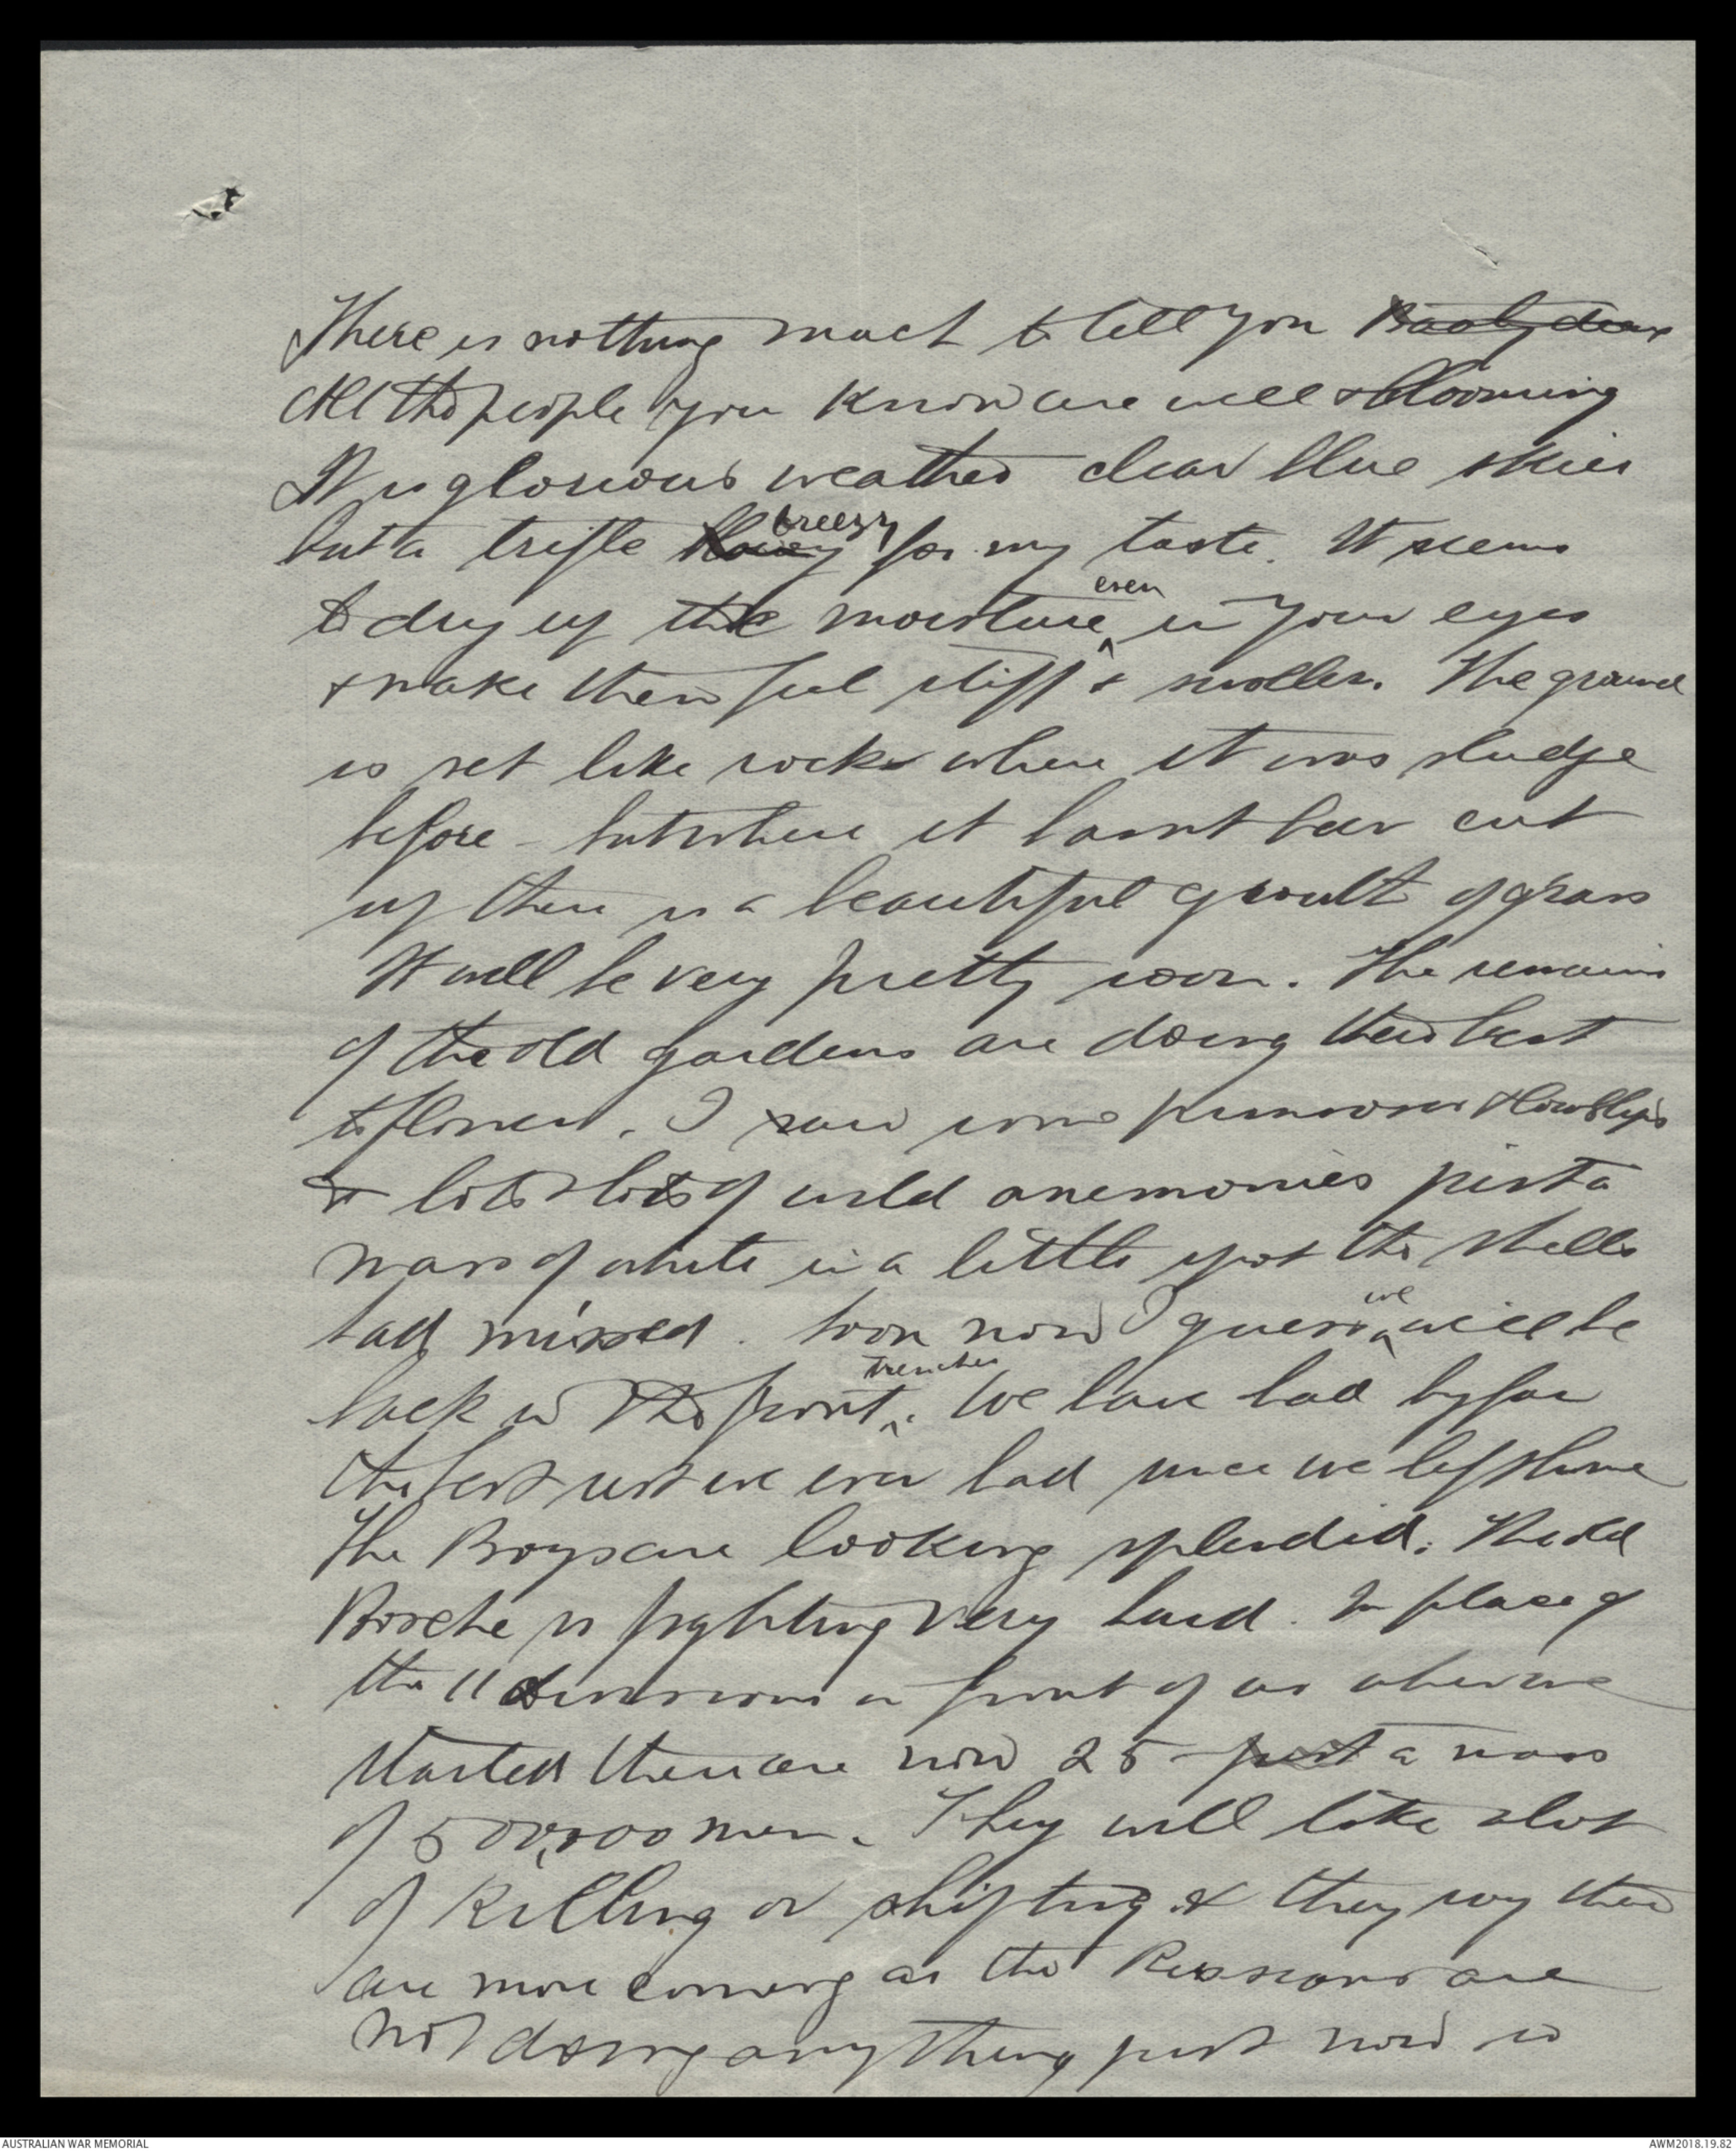 There is nothing much to tell you Baaly dear
All the people you know are well & blooming
It is glorious weather clear blue skies
but a trifle breezy for my taste. It seems
to dry up the moisture even in your eyes
& make them feel stiff & swollen. The ground
is set like rock where it was sludge
before - but where it hasnt been cut
up there is a beautiful growth of grass
It will be very pretty soon. The remains
of the old gardens are doing their best
to flower. I saw some primroses & cowslips
& lots & lots of wild anemonies just a
mass of white in a little spot the shells
had missed. Soon now I guess we will be
back in the front trenches. We have had by far
the best rest we ever had since we left home
The Boys are looking splendid. The old
Bosche is fighting very hard. In place of
the 11 divisions in front of us when we
started there are now 25 - just a mass
of 500,000 men. They will take alot
of killing or shifting & they say there
are more coming as the Russians are
not doing anything just now so
AUSTRALIAN WAR MEMORIAL
AWM2018.19.82